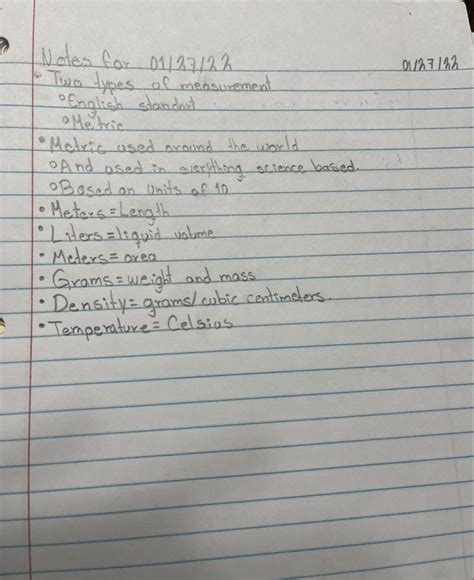 Notes for 01/27/22 01/27/22
• Two types of measurement
o English standart
o Metric
• Metric used around the world
o And used in everything science based.
o Based on Units of 10
• Meters = Length
• Liters = liquid volume
• Meters = area
• Grams = weight and mass
• Density = grams/cubic centimeters.
• Temperature = Celsius